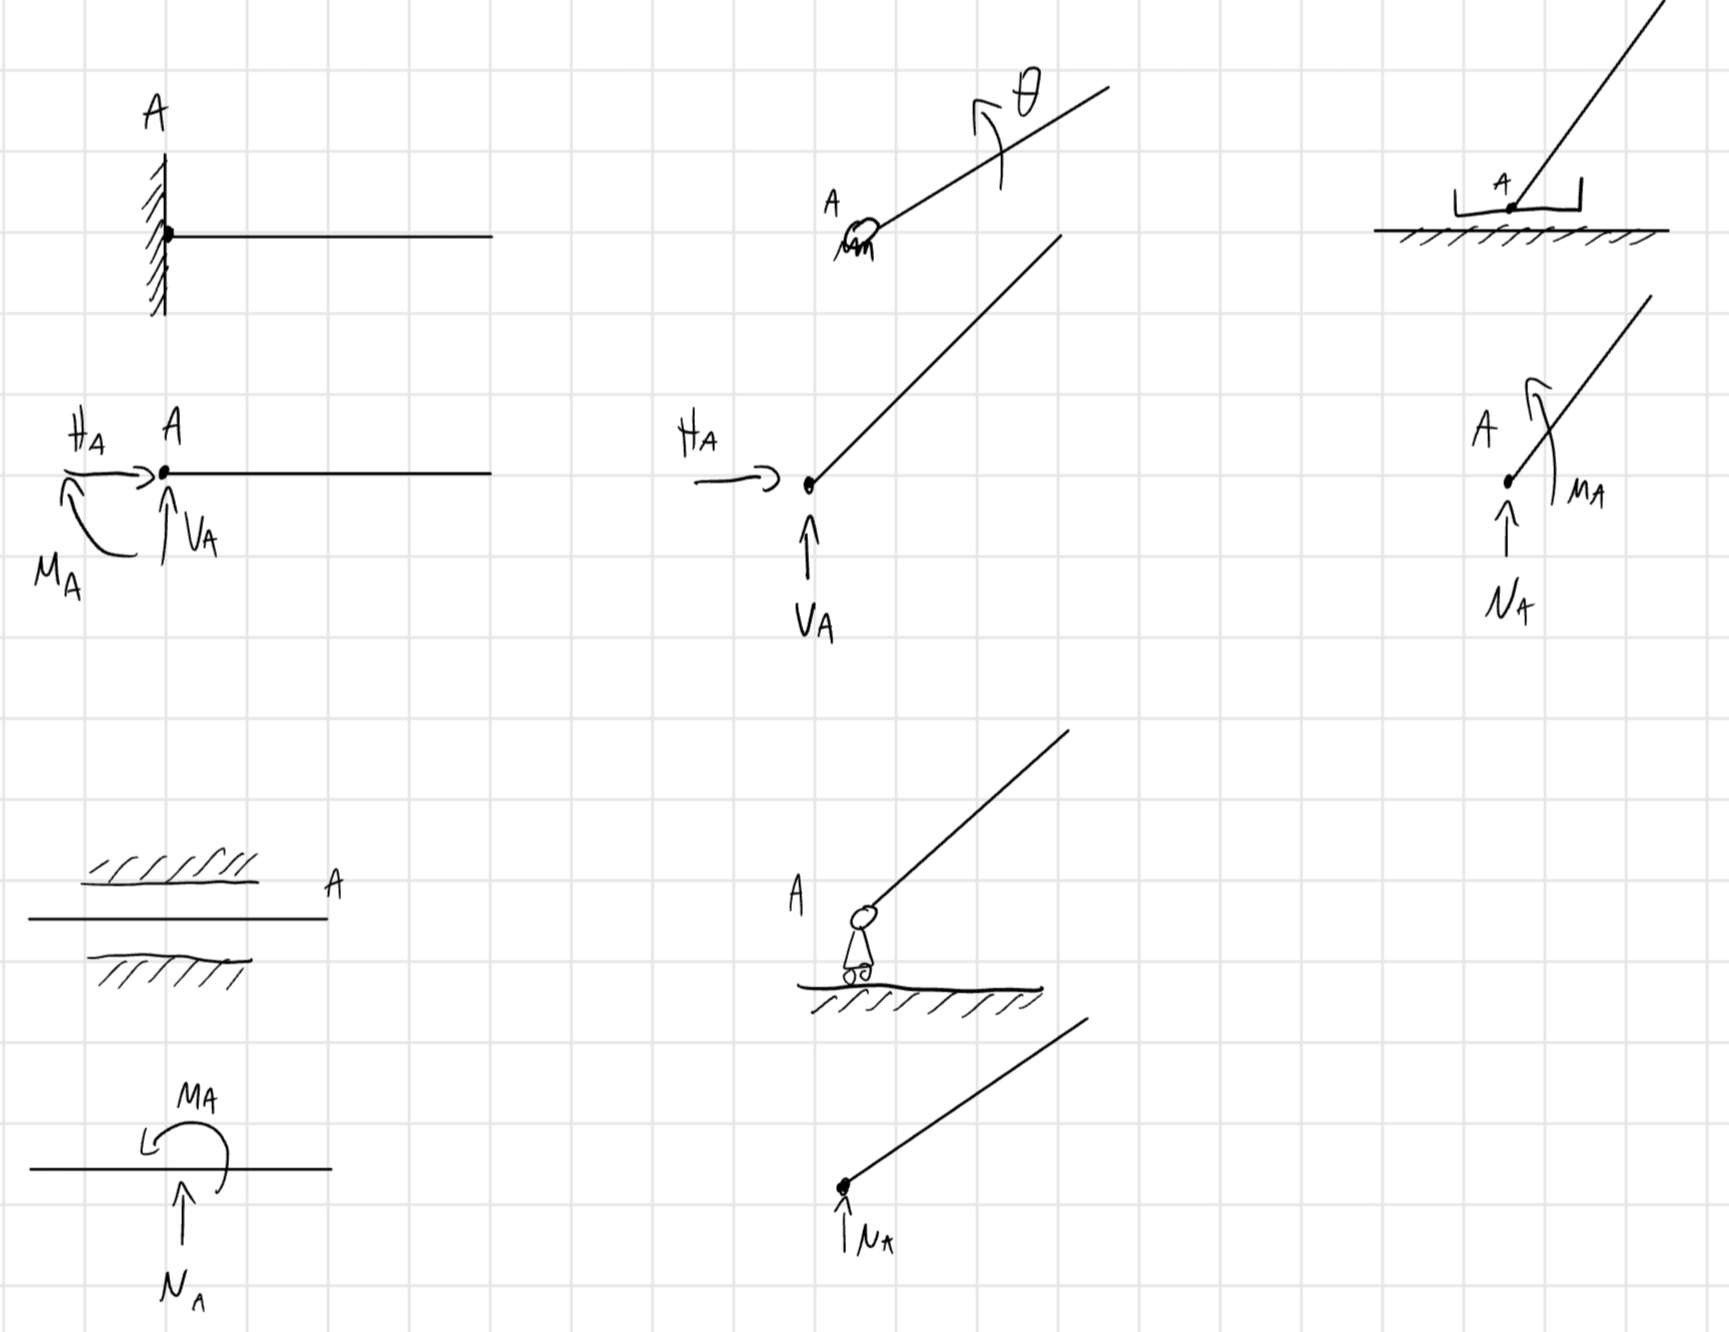 A
θ
A
A
H_A
A
V_A
M_A
H_A
V_A
A
M_A
N_A
A
A
M_A
N_A
N_A